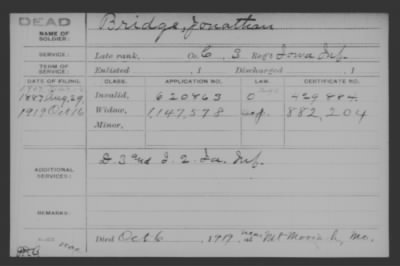 DEAD
NAME OF SOLDIER: Bridge, Jonathan
SERVICE: Late rank, Co. C, 3 Reg't Iowa Inf.
TERM OF SERVICE: Enlisted , 1 Discharged , 1
DATE OF FILING. CLASS. APPLICATION NO. LAW. CERTIFICATE NO.
1887 Aug 29 Invalid, 620863 429884
1919 Oct 16 Widow, 1,147,578 882,204
Minor,
ADDITIONAL SERVICES: D. 3 and I. 2. Ia. Inf.
REMARKS:
Died Oct 6, 1919, near at Mt Moriah, Mo.